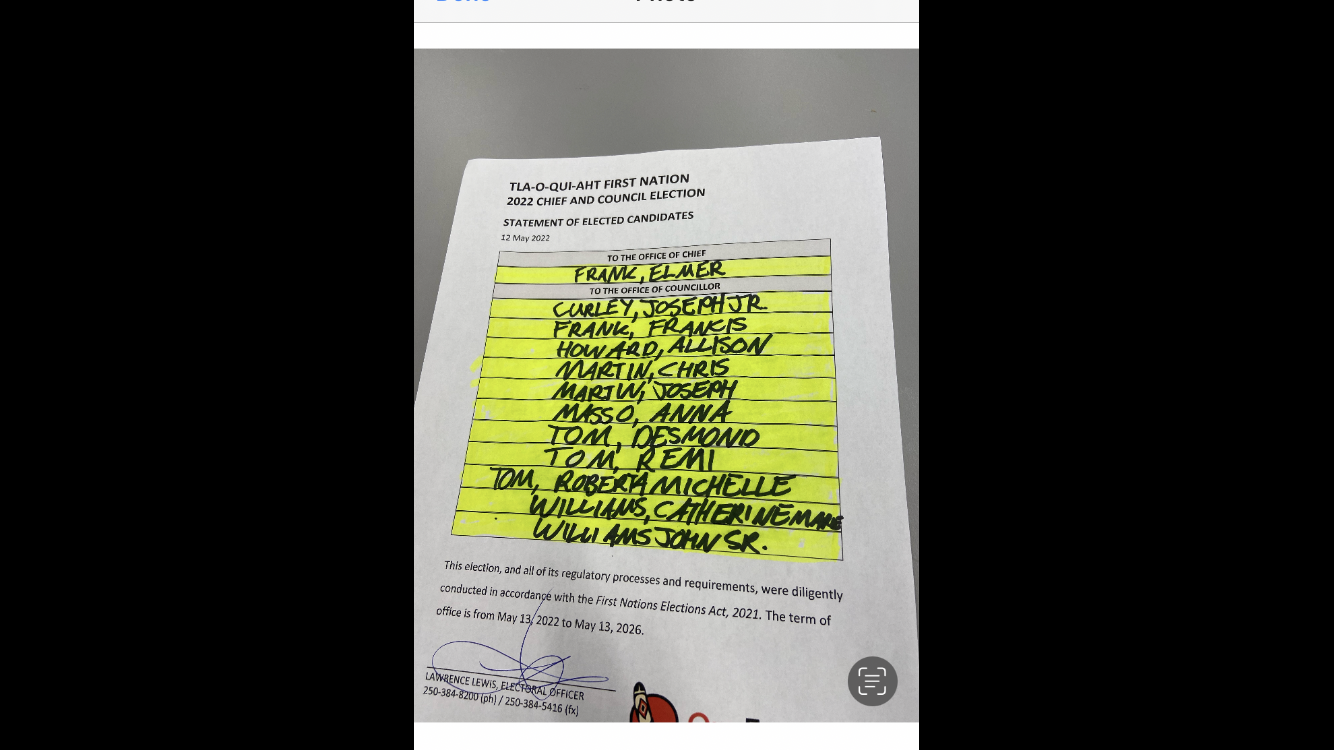 TLA-O-QUI-AHT FIRST NATION
2022 CHIEF AND COUNCIL ELECTION
STATEMENT OF ELECTED CANDIDATES
12 May 2022
TO THE OFFICE OF CHIEF
FRANK, ELMER
TO THE OFFICE OF COUNCILLOR
CURLEY, JOSEPH JR.
FRANK, FRANCIS
HOWARD, ALLISON
MARTIN, CHRIS
MARTIN, JOSEPH
MASSO, ANNA
TOM, DESMOND
TOM, REMI
TOM, ROBERTA MICHELLE
WILLIAMS, CATHERINE MARIE
WILLIAMS JOHN SR.
This election, and all of its regulatory processes and requirements, were diligently
conducted in accordance with the First Nations Elections Act, 2021. The term of
office is from May 13, 2022 to May 13, 2026.
LAWRENCE LEWIS, ELECTORAL OFFICER
250-384-8200 (ph) / 250-384-5416 (fx)